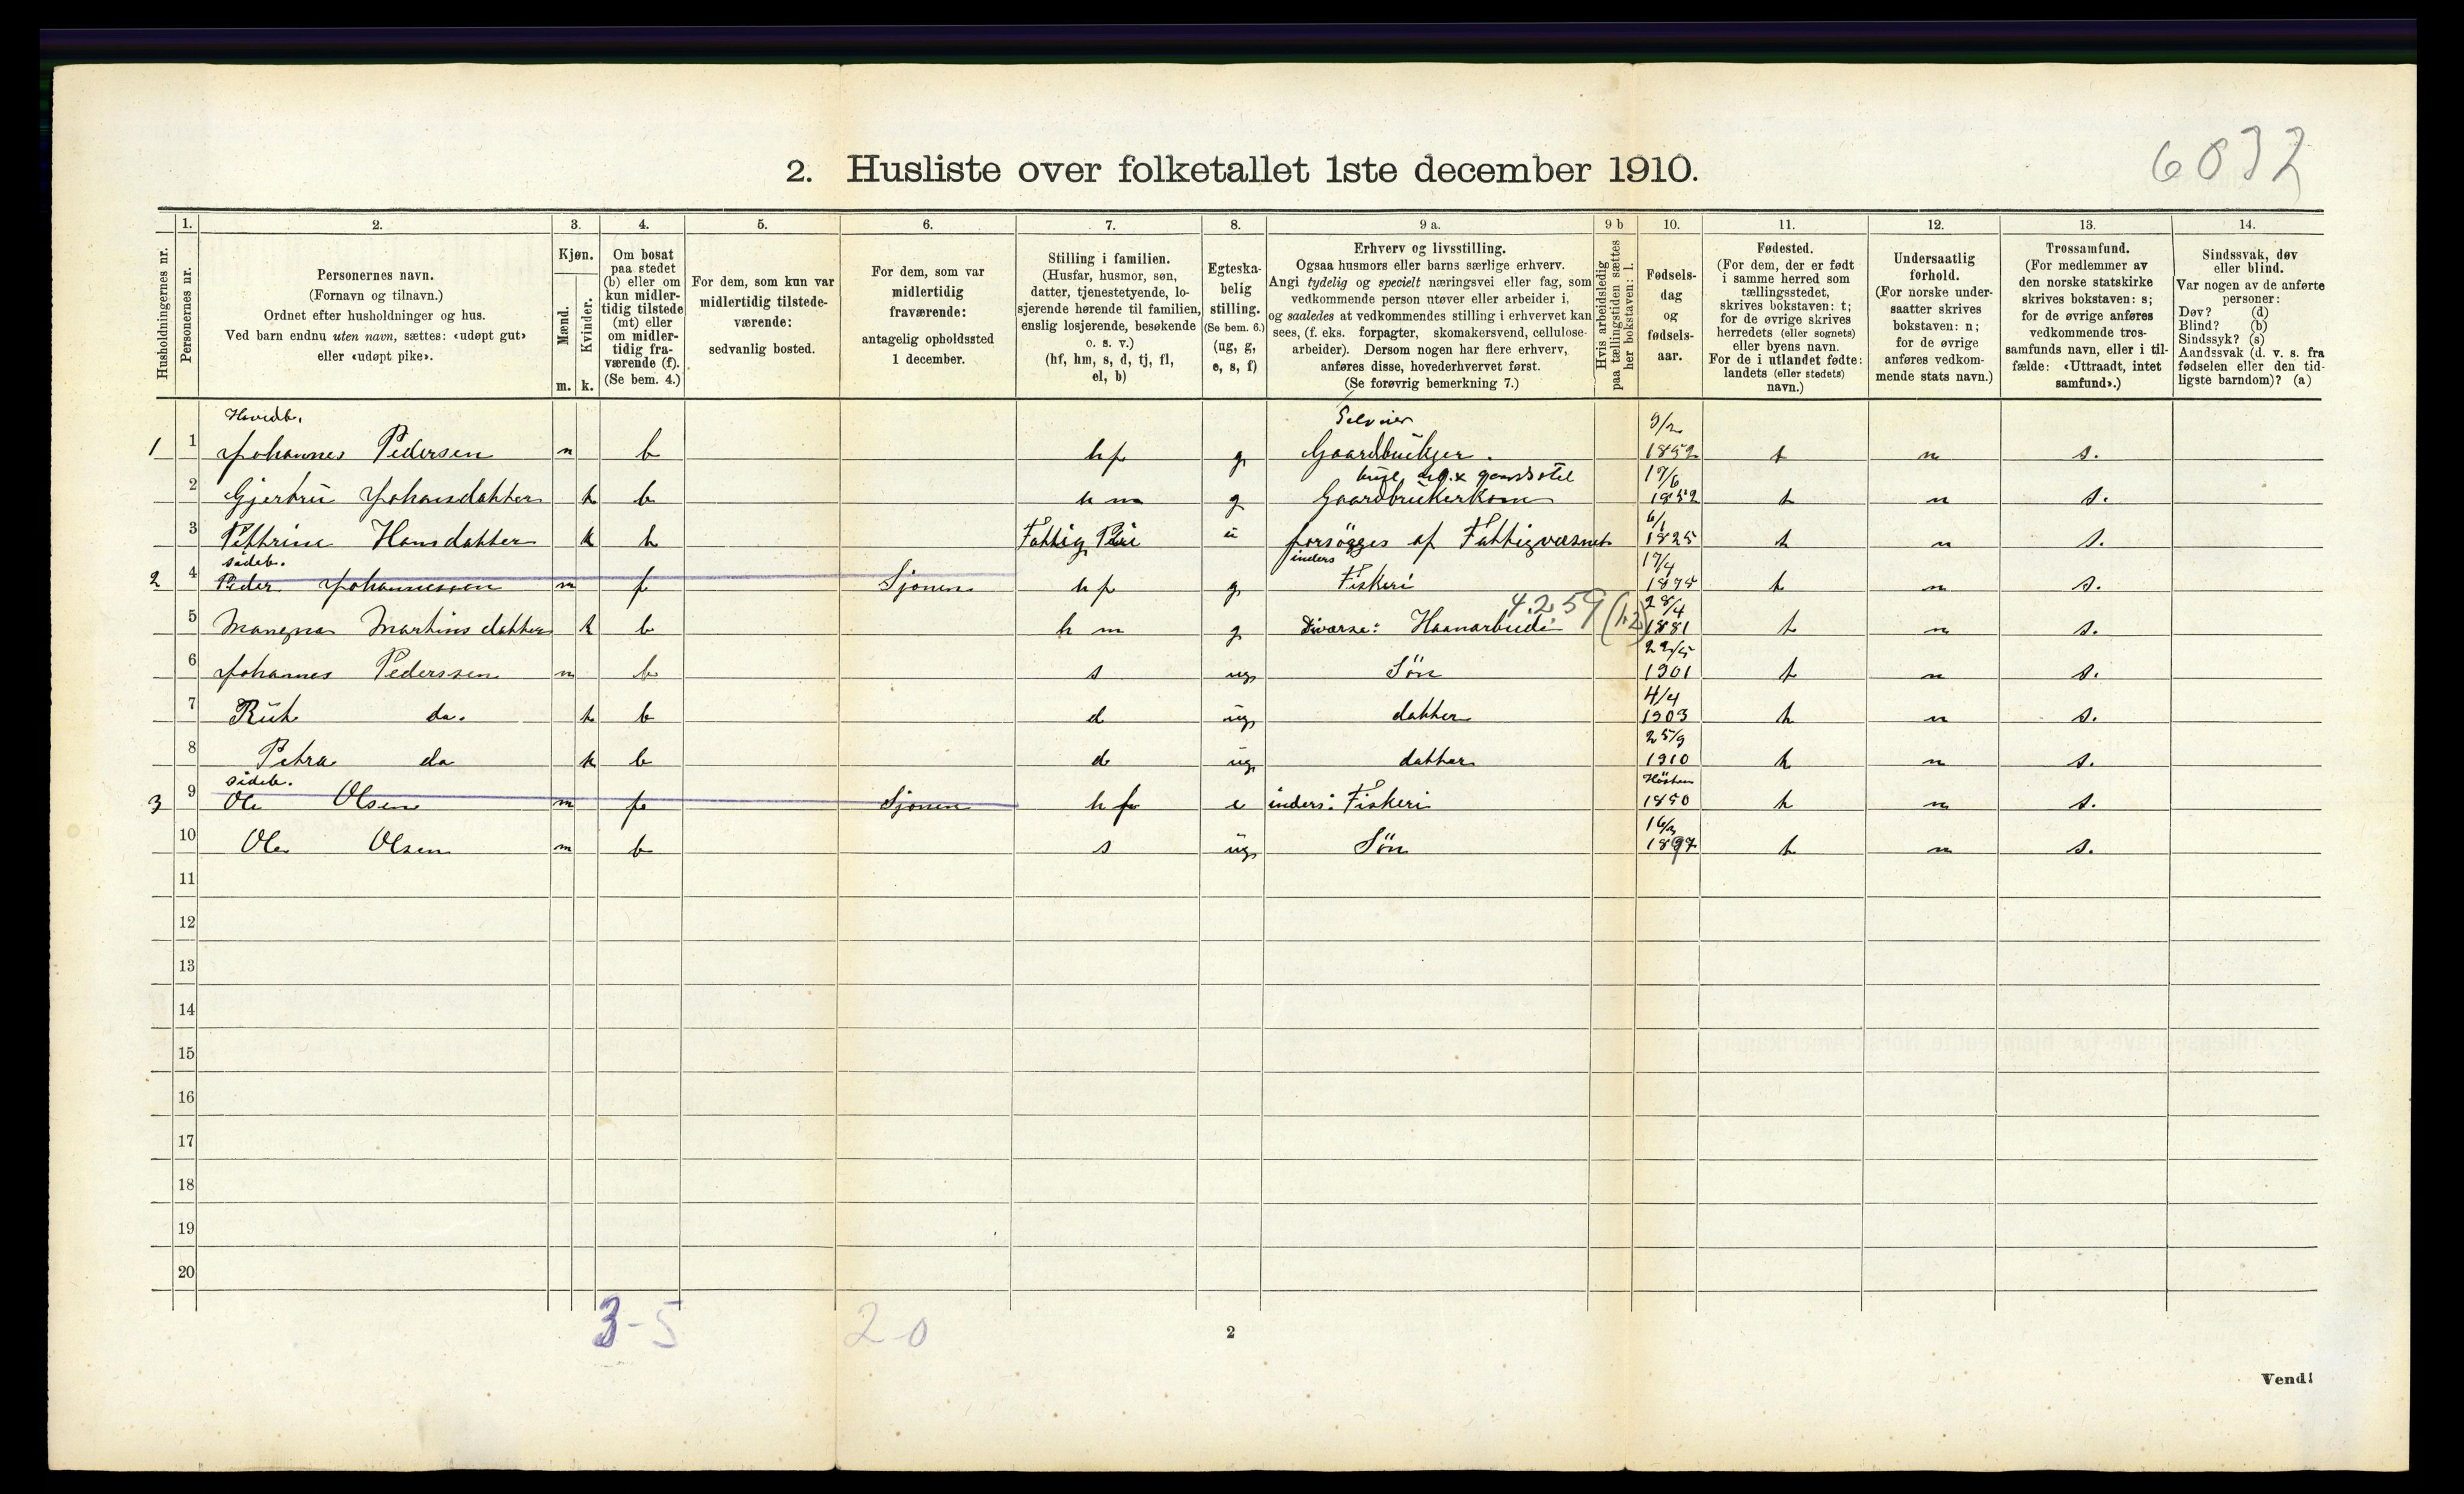 6032
2. Husliste over folketallet 1ste december 1910.
Husholdningernes nr.
1.
Personernes nr.
2.
Personernes navn.
(Fornavn og tilnavn.)
Ordnet efter husholdninger og hus.
Ved barn endnu uten navn, sættes: «udøpt gut»
eller «udøpt pike».
3.
Kjøn.
Mænd.
Kvinder.
m. k.
4.
Om bosat
paa stedet
(b) eller om
kun midler-
tidig tilstede
(mt) eller
om midler-
tidig fra-
værende (f).
(Se bem. 4.)
5.
For dem, som kun var
midlertidig tilstede-
værende:
sedvanlig bosted.
6.
For dem, som var
midlertidig
fraværende:
antagelig opholdssted
1 december.
7.
Stilling i familien.
(Husfar, husmor, søn,
datter, tjenestetyende, lo-
sjerende hørende til familien,
enslig losjerende, besøkende
o. s. v.)
(hf, hm, s, d, tj, fl,
el, b)
8.
Egteska-
belig
stilling.
(Se bem. 6.)
(ug, g,
e, s, f)
9 a.
Erhverv og livsstilling.
Ogsaa husmors eller barns særlige erhverv.
Angi tydelig og specielt næringsvei eller fag, som
vedkommende person utøver eller arbeider i,
og saaledes at vedkommendes stilling i erhvervet kan
sees, (f. eks. forpagter, skomakersvend, cellulose-
arbeider). Dersom nogen har flere erhverv,
anføres disse, hovederhvervet først.
(Se forøvrig bemerkning 7.)
9 b
Hvis arbeidsledig
paa tællingstiden sættes
her bokstaven: l.
10.
Fødsels-
dag
og
fødsels-
aar.
11.
Fødested.
(For dem, der er født
i samme herred som
tællingsstedet,
skrives bokstaven: t;
for de øvrige skrives
herredets (eller sognets)
eller byens navn.
For de i utlandet fødte:
landets (eller stedets)
navn.)
12.
Undersaatlig
forhold.
(For norske under-
saatter skrives
bokstaven: n;
for de øvrige
anføres vedkom-
mende stats navn.)
13.
Trossamfund.
(For medlemmer av
den norske statskirke
skrives bokstaven: s;
for de øvrige anføres
vedkommende tros-
samfunds navn, eller i til-
fælde: «Uttraadt, intet
samfund».)
14.
Sindssvak, døv
eller blind.
Var nogen av de anførte
personer:
Døv? (d)
Blind? (b)
Sindssyk? (s)
Aandssvak (d. v. s. fra
fødselen eller den tid-
ligste barndom)? (a)
Hovedb. Selveier 9/2
1 1 Johannes Pedersen m b hf g Gaardbrukger. 1852 t n s.
17/6
2 Gjertrü Johansdatter k b hm g Gaardbrukerkone 1852 t n s.
6/1
3 Pettrine Hansdatter k b Fattig forsögges af Fattigvæsnet 1825 t n s.
sideb. inders 17/4
2 4 Peder Johannessen m f Sjonen hf g Fiskeri 1875 t n s.
4.2.59 28/4
5 Mangna Martinsdatter k b hm g Diverse: Haanarbeide 1881 t n s.
6 Johannes Pederssen m b s ug Sön 1901 t n s.
4/4
7 Rut do. k b d ug datter 1903 t n s.
25/9
8 Petra do k b d ug datter 1910 t n s.
sideb. Hösten
3 9 Ole Olsen m f Sjonen hf e inders: Fiskeri 1850 t n s.
10 Ole Olsen m b s ug Sön 1897 t n s.
11
12
13
14
15
16
17
18
19
20
3-5 2-0
2
Vend!